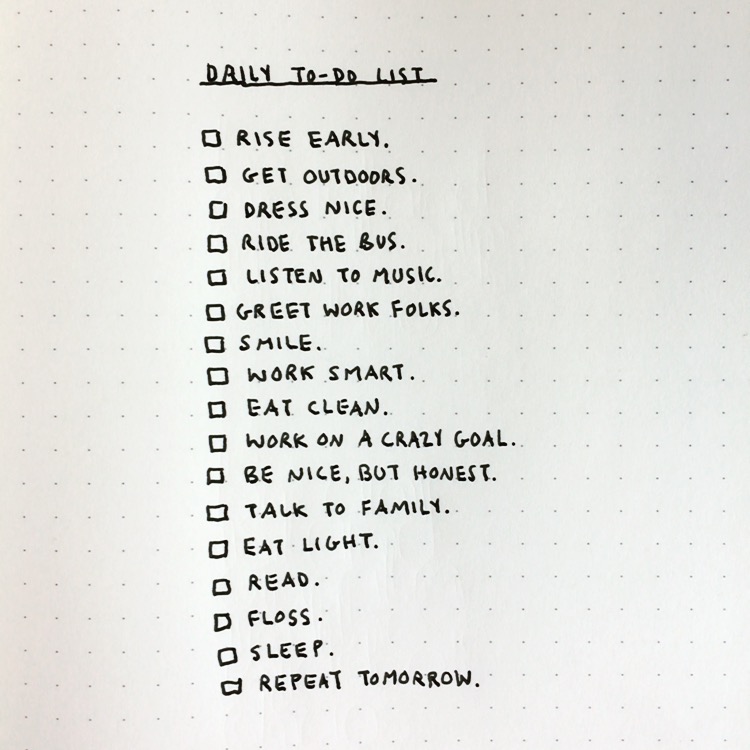 DAILY TO-DO LIST
RISE EARLY.
GET OUTDOORS.
DRESS NICE.
RIDE THE BUS.
LISTEN TO MUSIC.
GREET WORK FOLKS.
SMILE.
WORK SMART.
EAT CLEAN.
WORK ON A CRAZY GOAL.
BE NICE, BUT HONEST.
TALK TO FAMILY.
EAT LIGHT.
READ.
FLOSS.
SLEEP.
REPEAT TOMORROW.